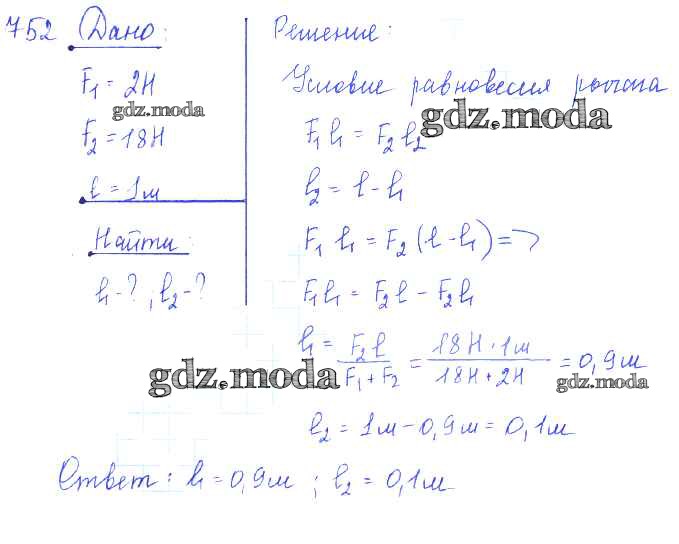 752 Дано:
F₁ = 2Н
gdz.moda
F₂ = 18Н
l = 1м
Найти:
l₁ - ?, l₂ - ?
Решение:
Условие равновесия рычага
gdz.moda
F₁l₁ = F₂l₂
l₂ = l - l₁
F₁ l₁ = F₂ (l - l₁) =>
F₁l₁ = F₂l - F₂l₁
l₁ = F₂l / (F₁ + F₂) = 18Н · 1м / (18Н + 2Н) = 0,9м
gdz.moda
gdz.moda
l₂ = 1м - 0,9м = 0,1м
Ответ: l₁ = 0,9м ; l₂ = 0,1м.